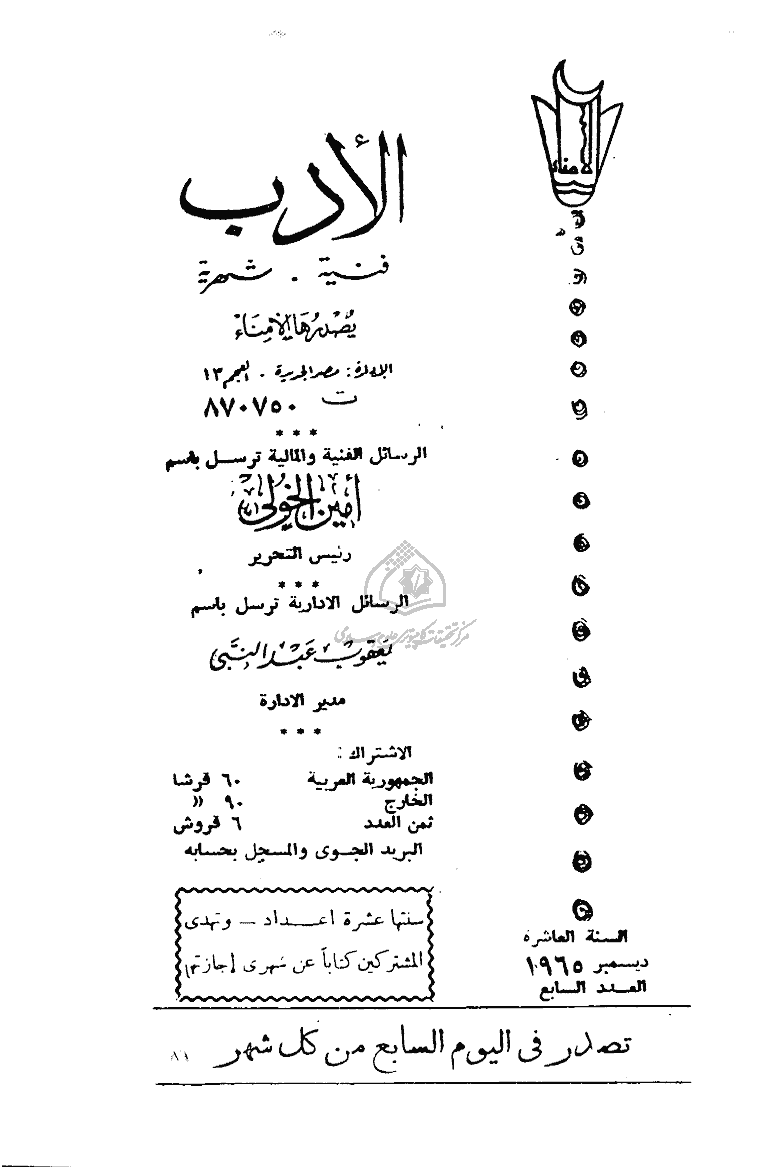 الأمناء
الأدب
فنية . شهرية
يُصْدرُهَا الأمنَاء
الإدارة : مصر الجديدة . العجم ١٣
ت ٨٧٠٧٥٠
***
الرسائل الفنية والمالية ترسل باسم
أمين الخولي
رئيس التحرير
***
الرسائل الادارية ترسل باسم
يعقوب عبد النبي
مدير الادارة
***
الاشتراك :
الجمهورية العربية ٦٠ قرشا
الخارج ٩٠ »
ثمن العدد ٦ قروش
البريد الجوى والمسجل بحسابه
سنتها عشرة اعداد – وتهدى
المشتركين كتاباً عن شهرى إجازتها
السنة العاشرة
ديسمبر ١٩٦٥
العدد السابع
تصدر فى اليوم السابع من كل شهر
٨١